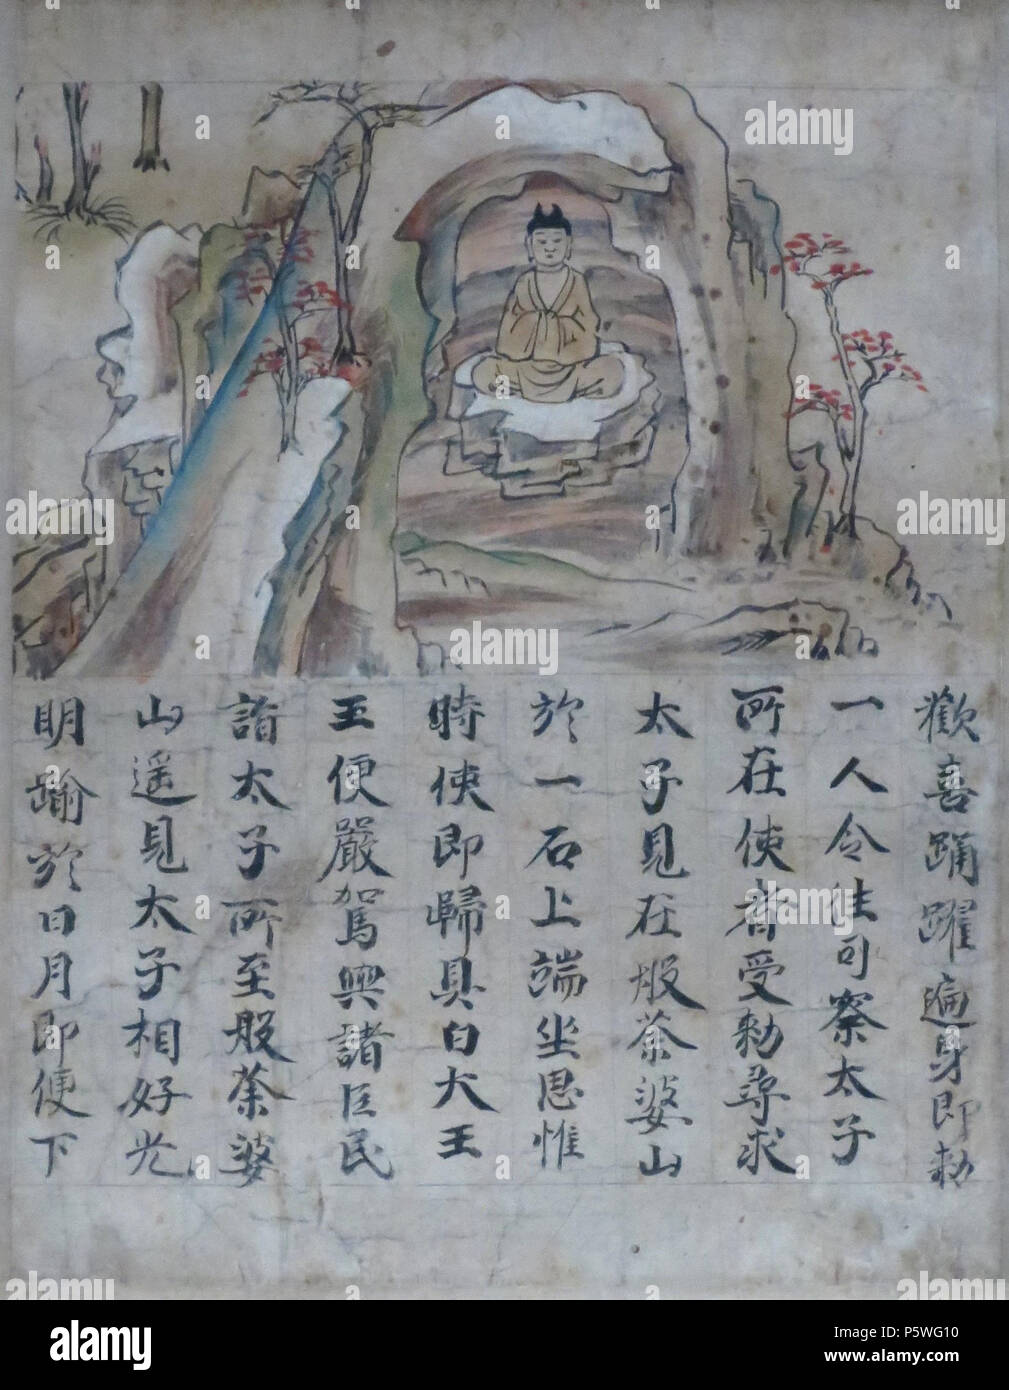 歡喜踊躍遍身即勅
一人令往司察太子
所在使者受勅尋求
太子見在般茶婆山
於一石上端坐思惟
時使即歸具白大王
王便嚴駕與諸臣民
詣太子所至般茶婆
山遥見太子相好光
明踰於日月即便下
alamy
Image ID: P5WG10
www.alamy.com